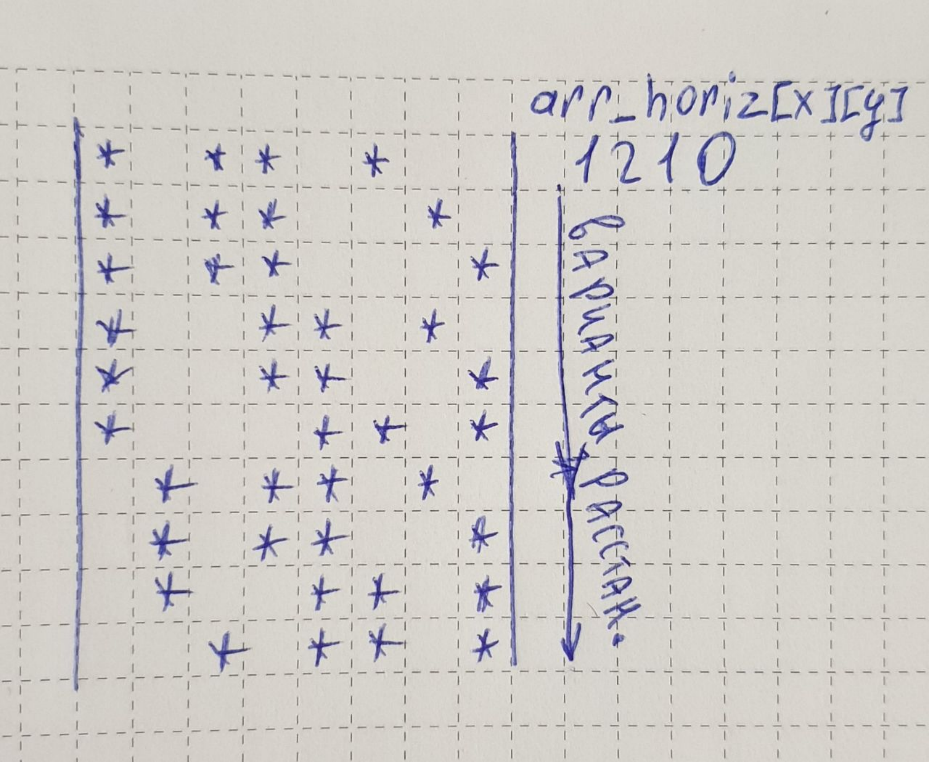 arr_horiz[x][y]
* * * * 1210
* * * *
* * * *
* * * *
* * * *
* * * *
* * * *
* * * *
* * * *
* * * *
вАРИАНТЫ РАССТАН.